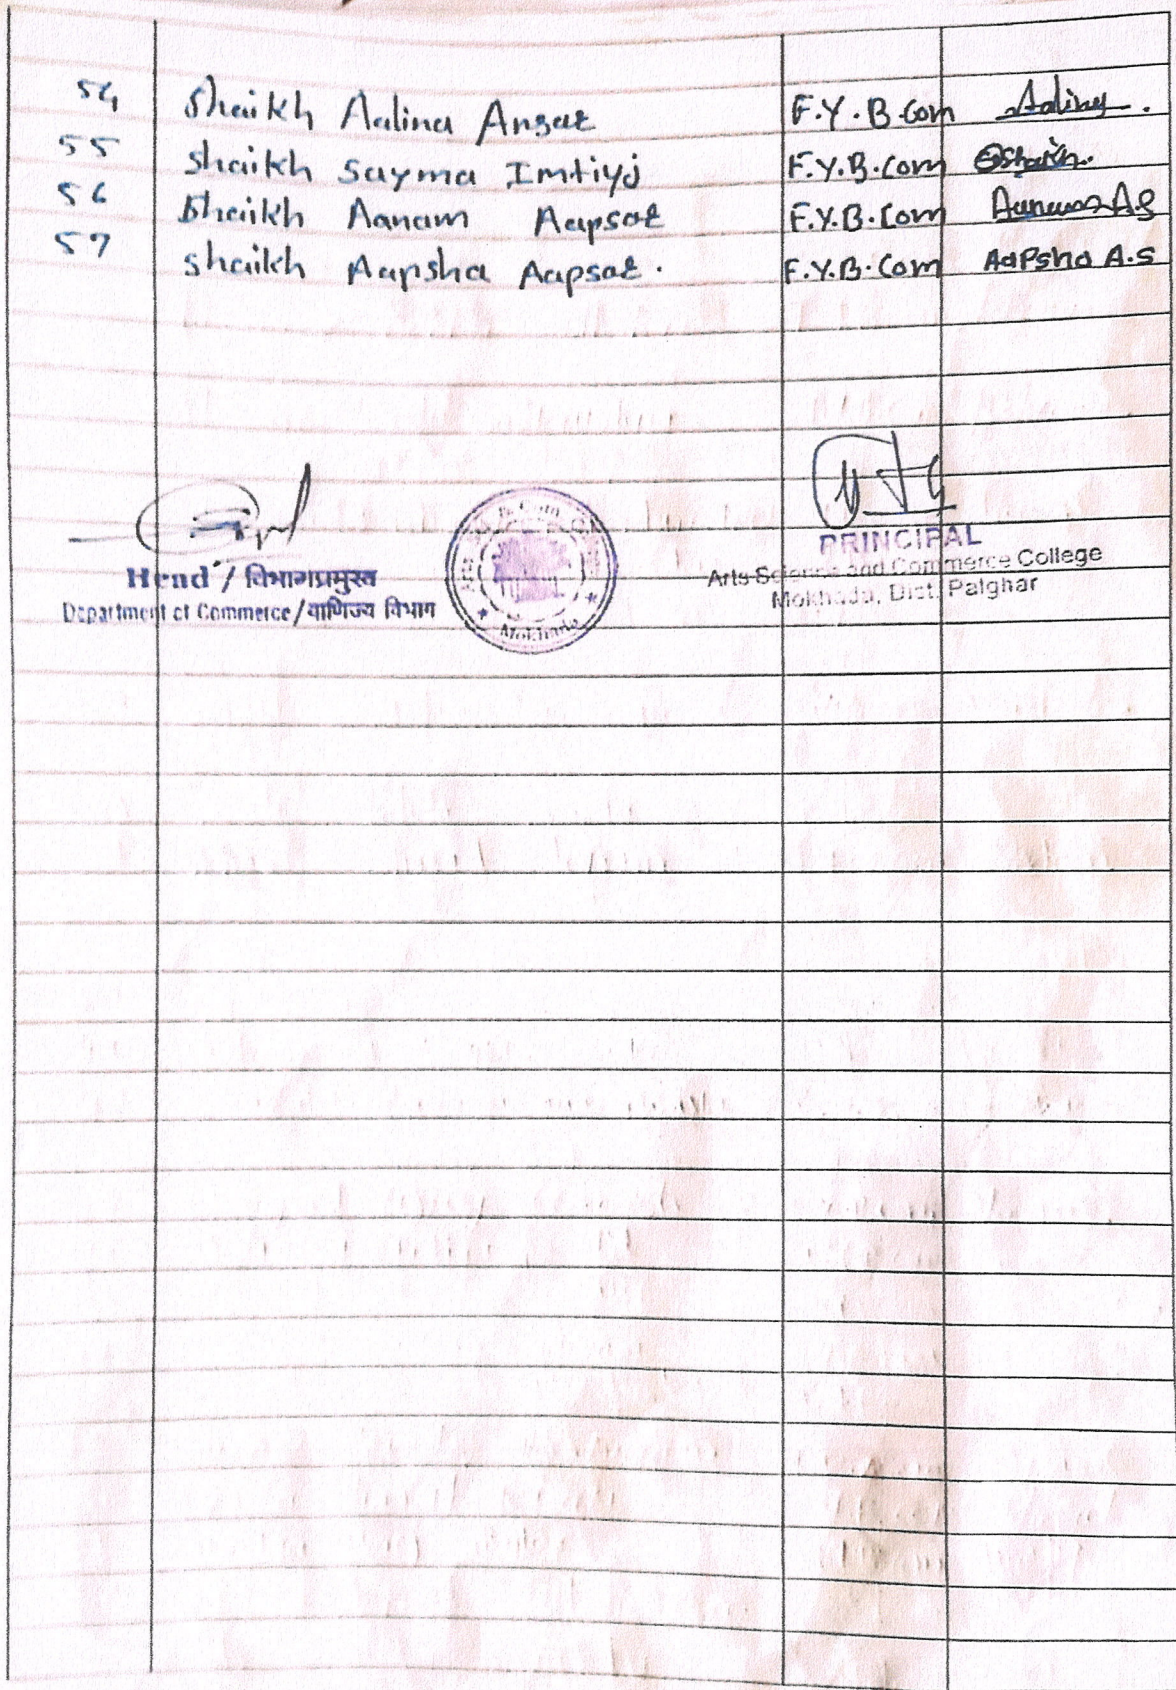 54 Shaikh Aalina Ansar F.Y.B.Com Aalina.
55 shaikh Sayma Imtiyj F.Y.B.Com Shaikh.
56 Shaikh Aanam Aapsar F.Y.B.Com Aanam AS
57 shaikh Aapsha Aapsar. F.Y.B.Com AaPsha A.S
Head / विभागप्रमुख
Department of Commerce/वाणिज्य विभाग
Mokhada
PRINCIPAL
Arts Science and Commerce College
Mokhada, Dist. Palghar